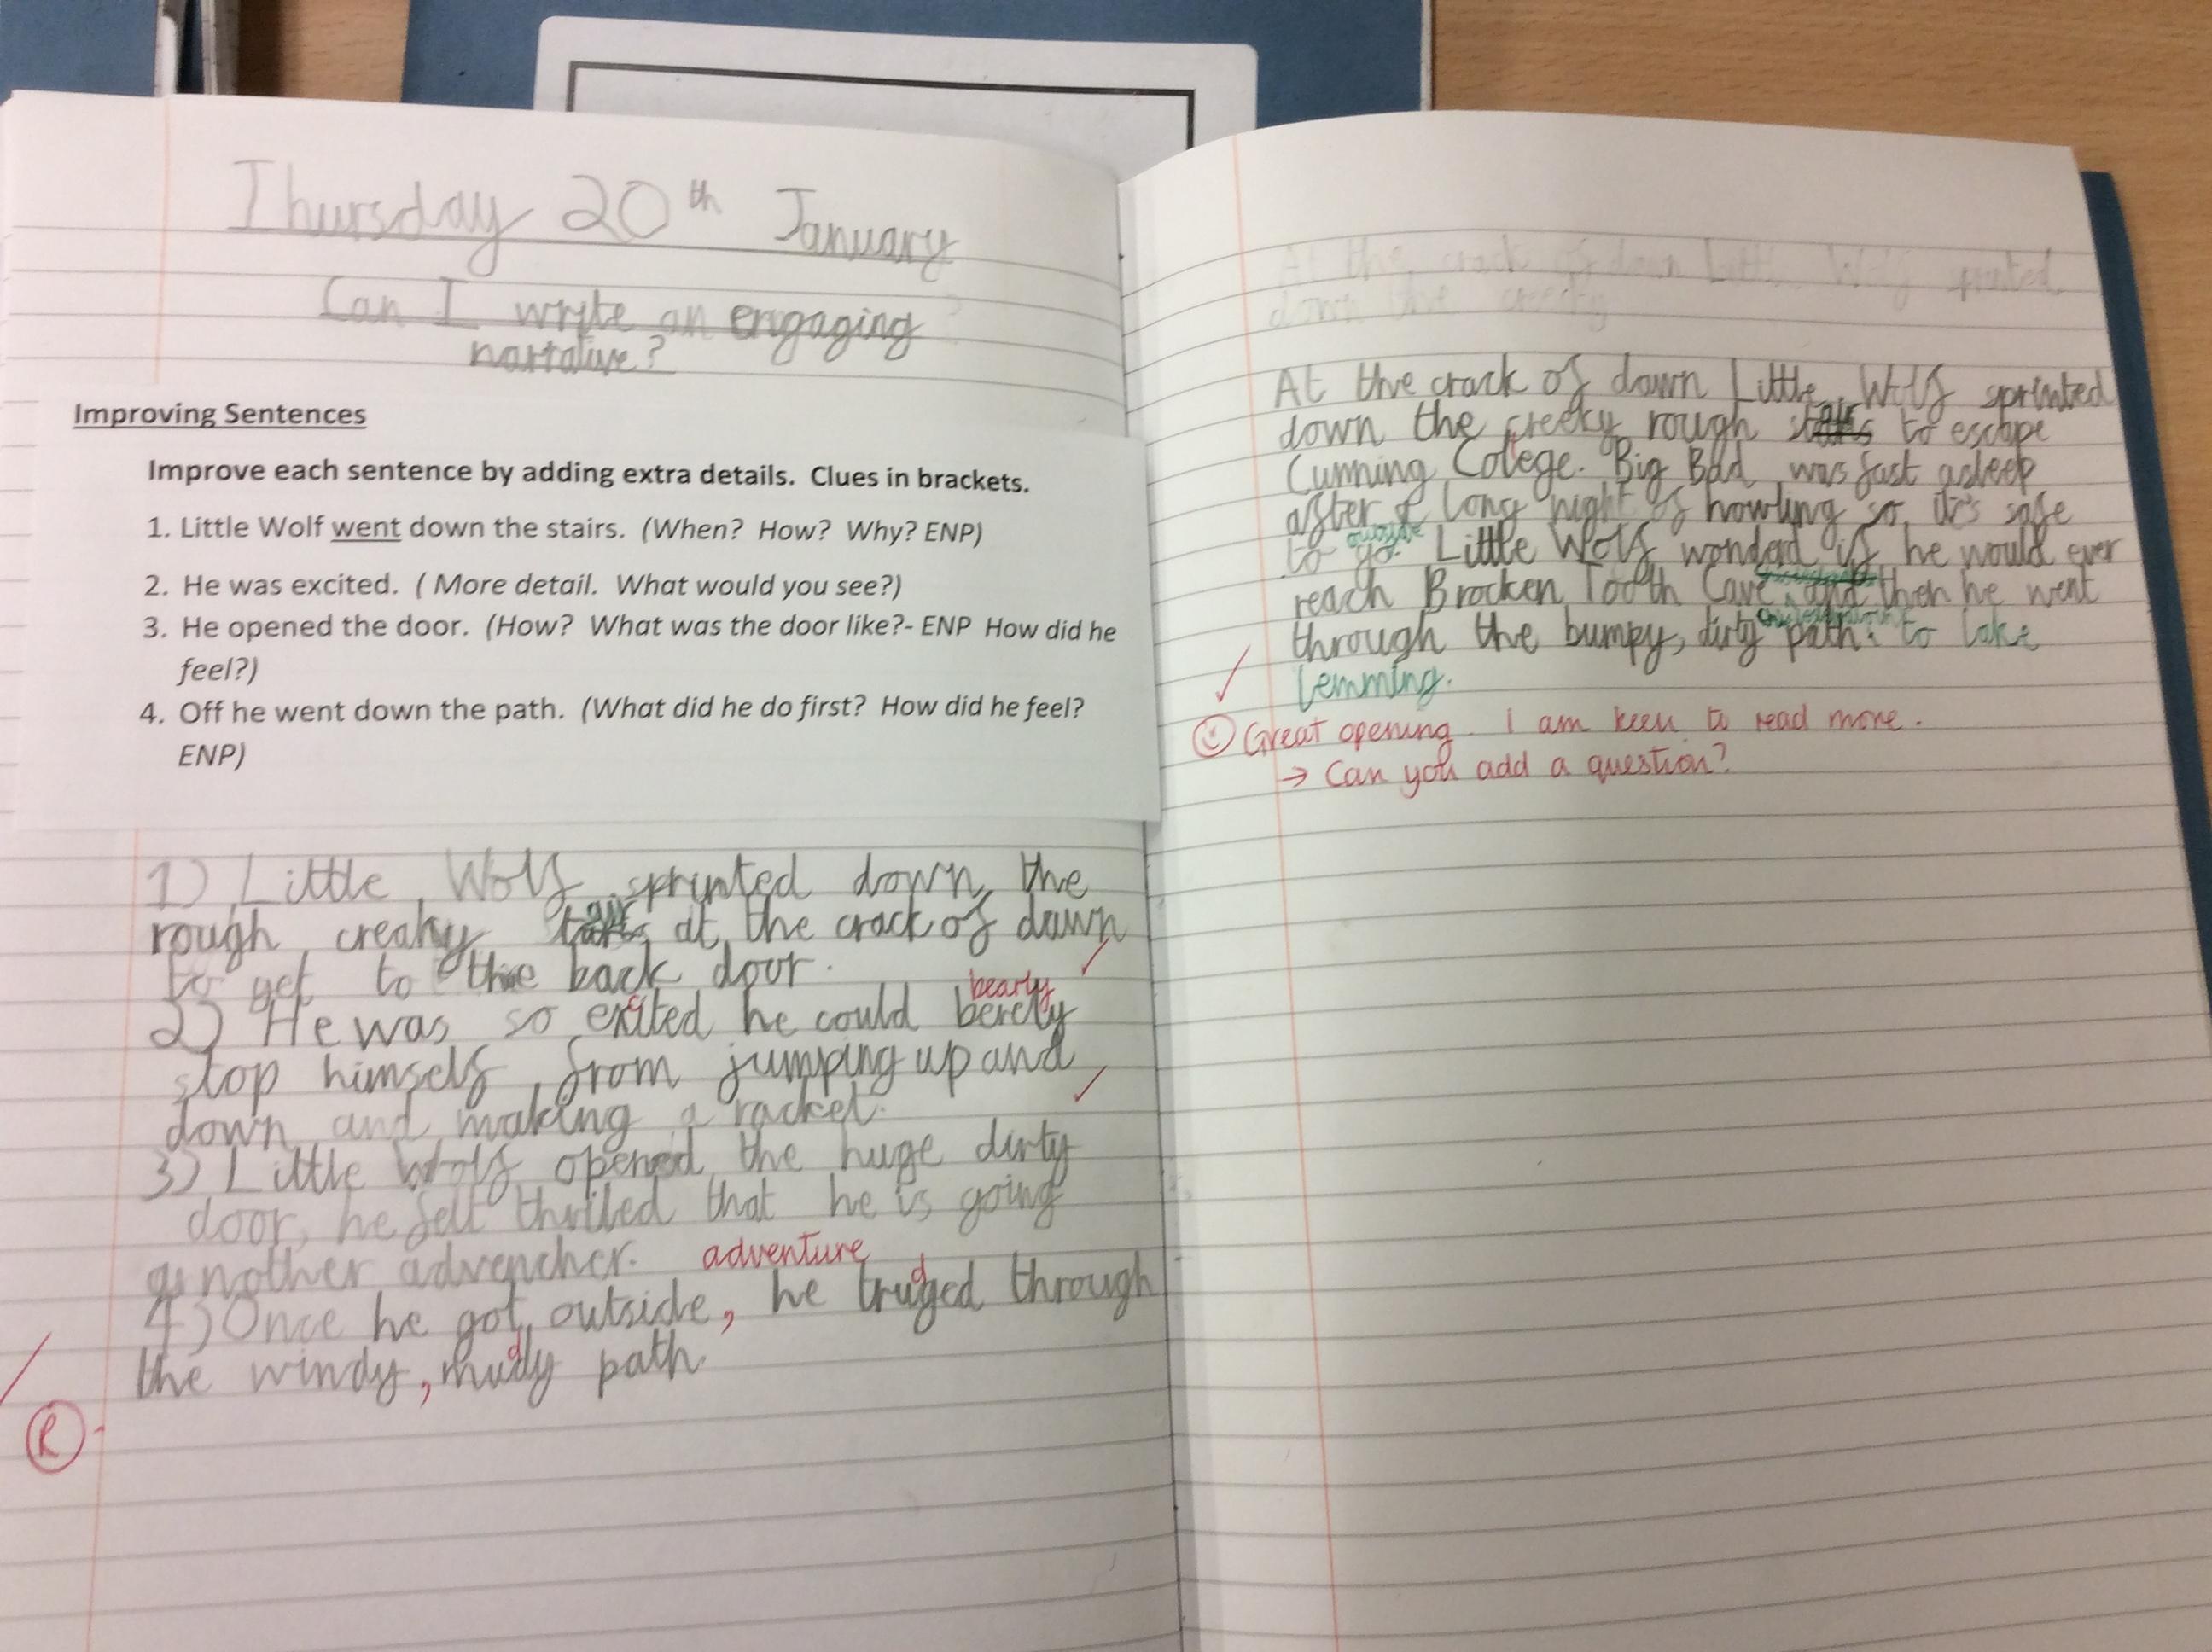 Thursday 20th January
Can I write an engaging
narrative?
Improving Sentences
Improve each sentence by adding extra details. Clues in brackets.
1. Little Wolf went down the stairs. (When? How? Why? ENP)
2. He was excited. ( More detail. What would you see?)
3. He opened the door. (How? What was the door like?- ENP How did he
feel?)
4. Off he went down the path. (What did he do first? How did he feel?
ENP)
1) Little Wolf sprinted down the
air
rough creaky at the crack of dawn
to get to the back door.
bearly
2) He was so exited he could berely
stop himself from jumping up and
down and making a racket.
3) Little Wolf opened the huge dirty
door, he felt thrilled that he is going
on another advencher. adventure
4) Once he got outside, he trudged through
the windy, muddy path.
R
At the crack of dawn Little Wolf sprinted
down the creeky
At the crack of dawn Little Wolf sprinted
air
down the creeky rough stairs to escape
Cunning Colege. Big Bad was fast asleep
after a long night of howling so it's safe
outside
to go. Little Wolf wonderd if he would ever
reach Brocken Tooth Cave and then he went
through the bumpy, dirty path to lake
Lemming.
Great opening. I am keen to read more.
→ Can you add a question?